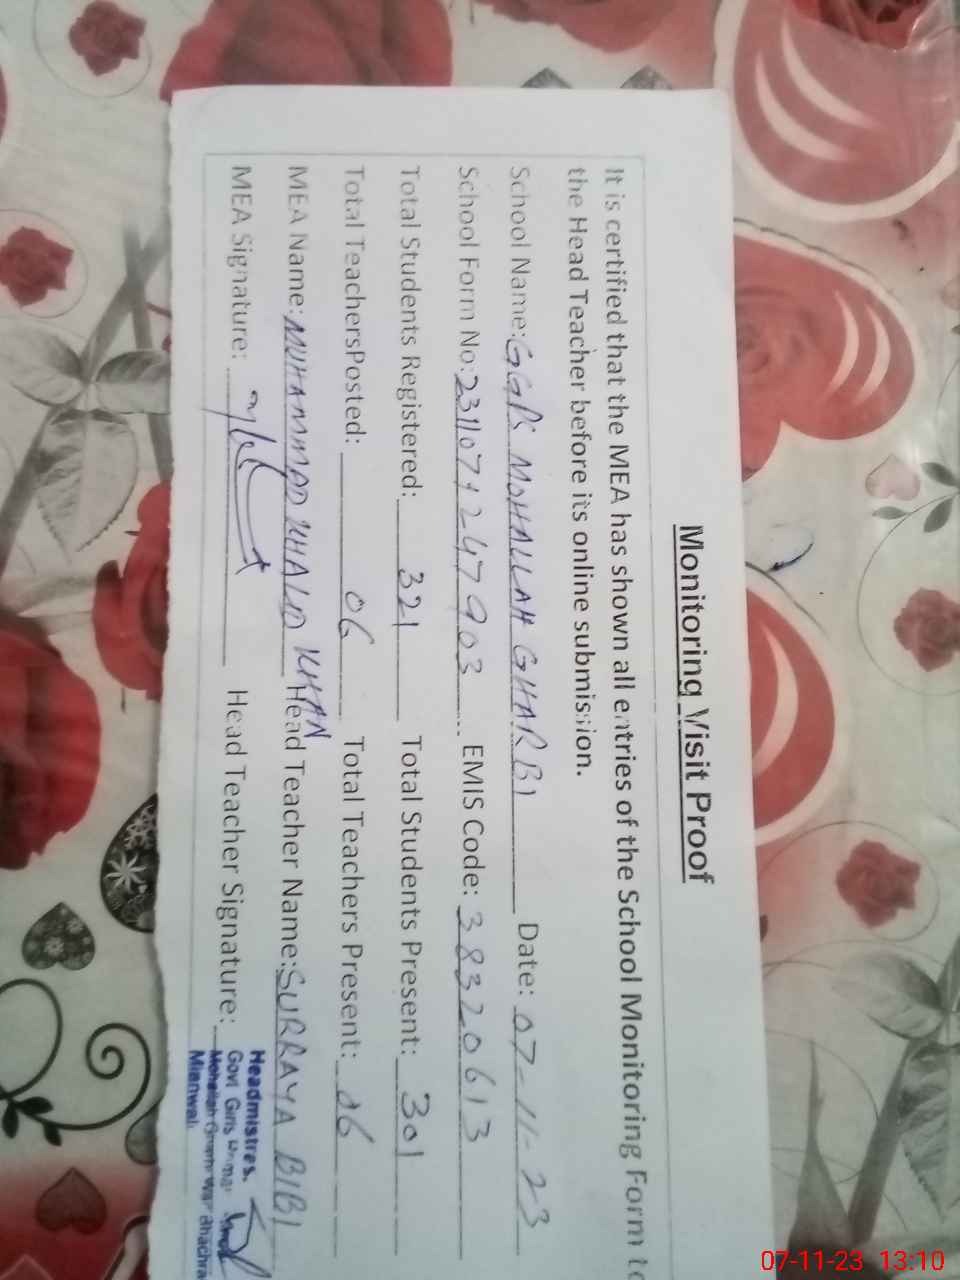 Monitoring Visit Proof
It is certified that the MEA has shown all entries of the School Monitoring Form to
the Head Teacher before its online submission.
School Name: GGPS MOHALLAH GHARBI Date: 07-11-23
School Form No: 2311071247903 EMIS Code: 38320613
Total Students Registered: 321 Total Students Present: 301
Total TeachersPosted: 06 Total Teachers Present: 06
MEA Name: MUHAMMAD KHALID KHAN Head Teacher Name: SURRAYA BIBI
MEA Signature: Head Teacher Signature:
Headmistres.
Govt Girls
Mohallah
Mianwali
07-11-23 13:10